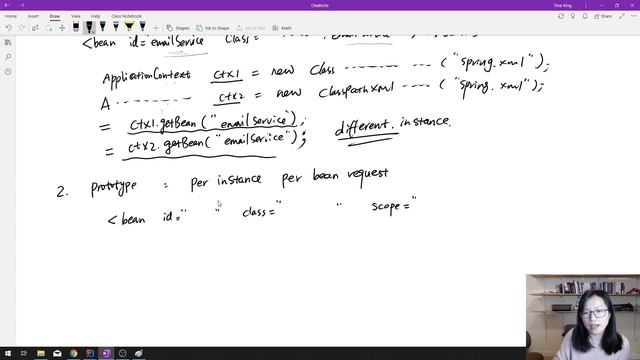 OneNote
Tina Xing
File Home Insert Draw View Help Class Notebook
Shapes Ink to Shape Ink to Text Math
<bean id=emailService class=
ApplicationContext ctx1 = new Class ("spring.xml");
A ctx2 = new ClasspathXml ("spring.xml");
= ctx1.getBean("emailService");
= ctx2.getBean("emailService"); different instance.
2. prototype : per instance per bean request
<bean id=" " class=" " scope="